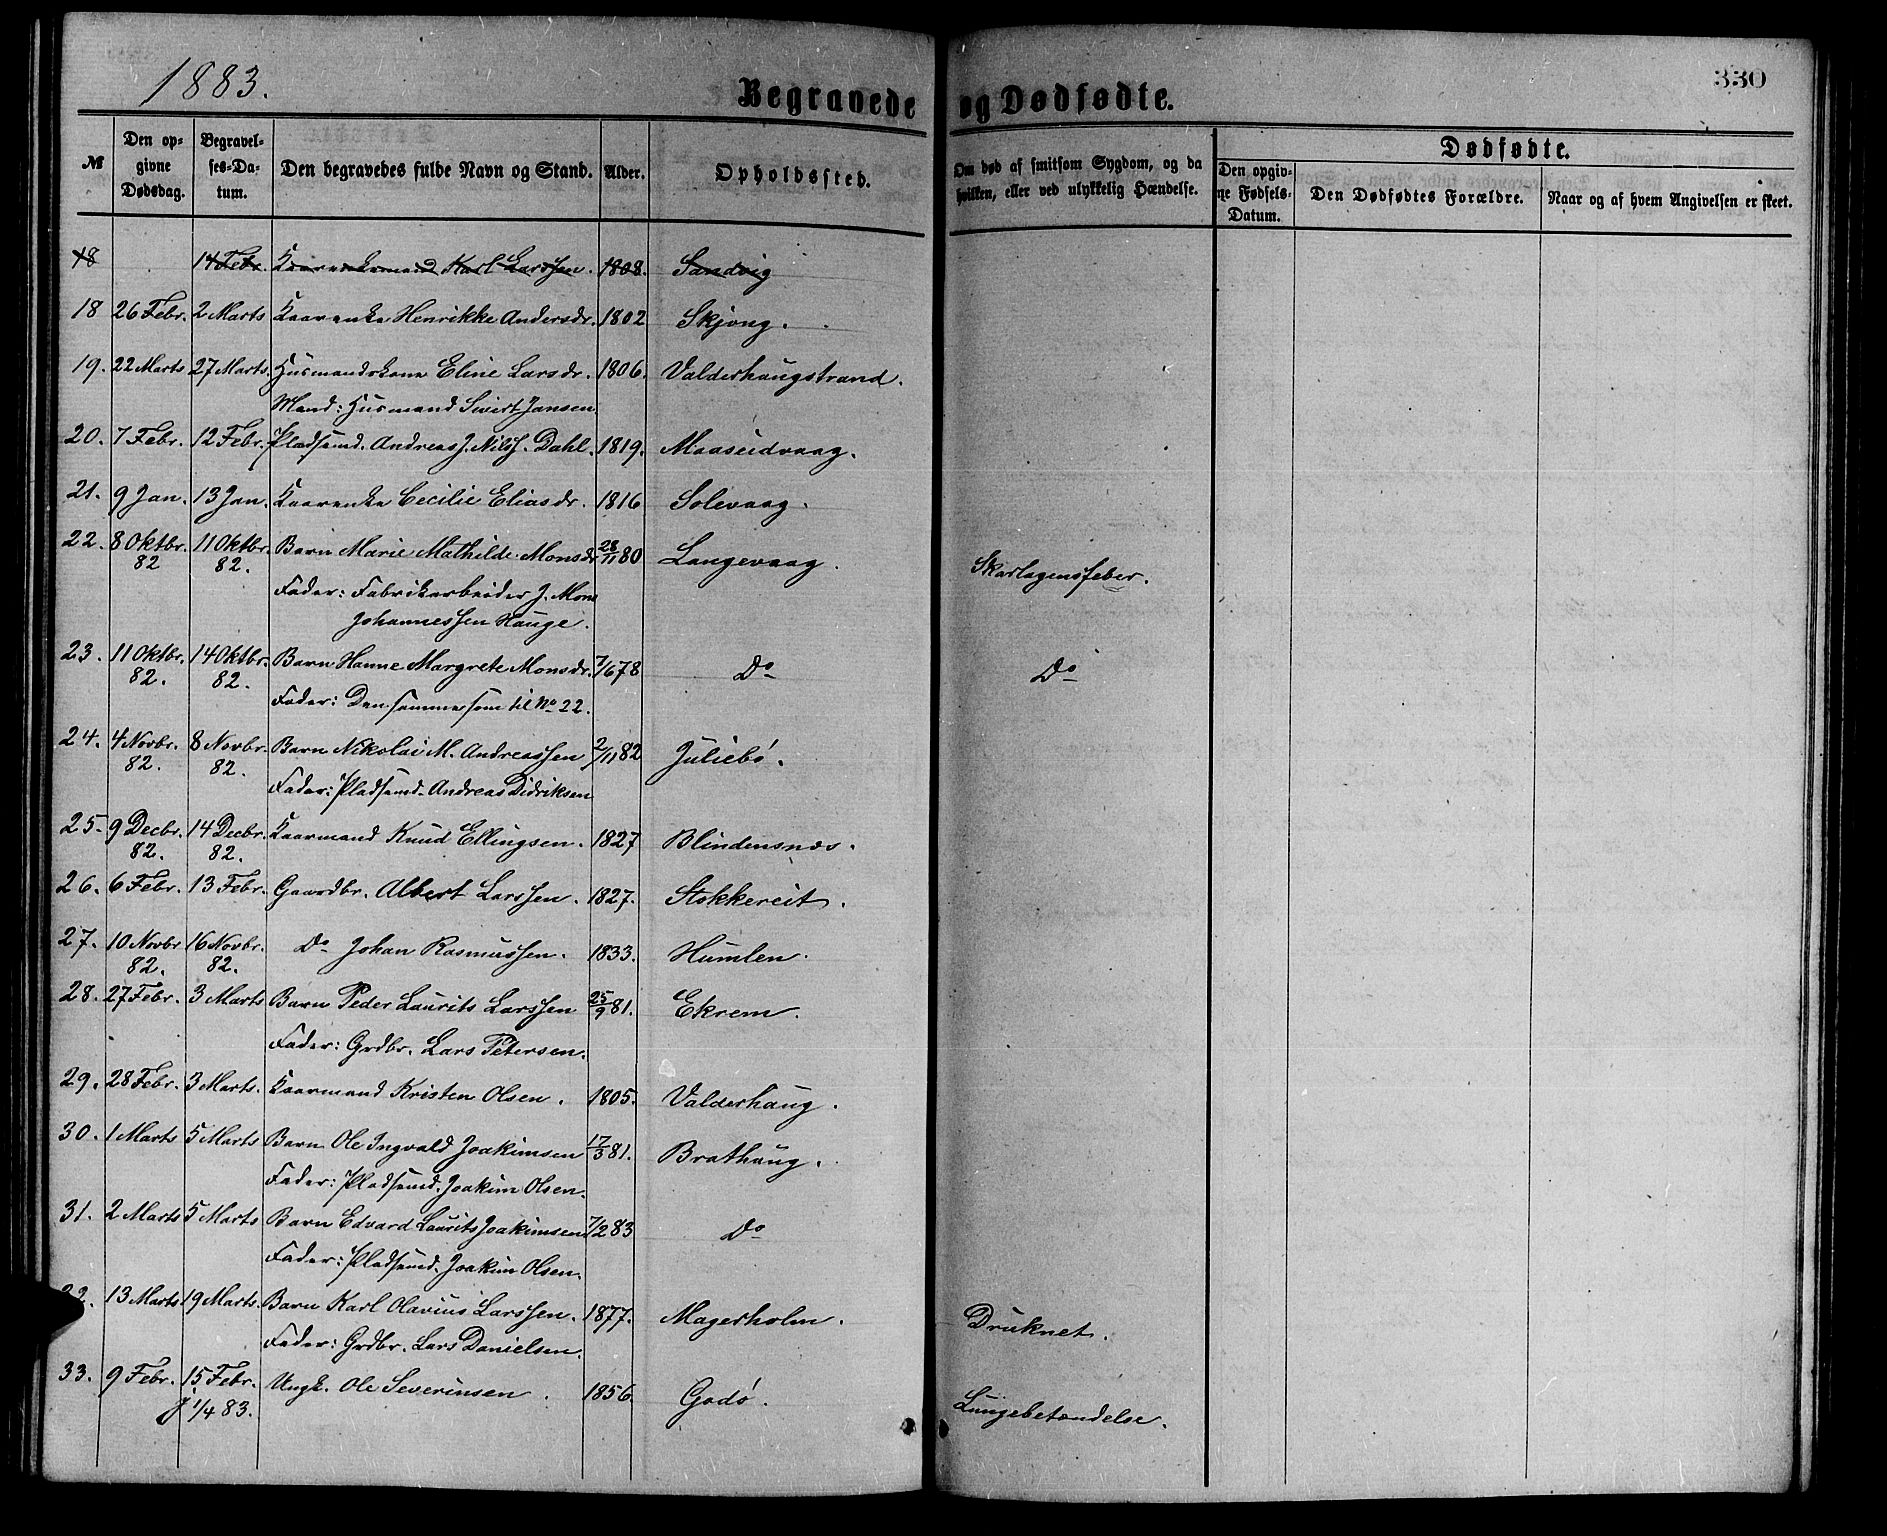 1883.
Begravede og Dødfødte.
330
№
Den opgivne Dødsdag.
Begravelses-Datum.
Den begravedes fulde Navn og Stand.
Alder.
Opholdssted.
Om død af smitsom Sygdom, og da hvilken, eller ved ulykkelig Hændelse.
Dødfødte.
Den opgivne Fødsels-Datum.
Den Dødfødtes Forældre.
Naar og af hvem Angivelsen er skeet.
18 14 Febr. Kaarenkemand Karl Larssen. 1808. Sandvig
18 26 Febr. 2 Marts Kaarenke Henrikke Andersdr. 1802 Skjong.
19. 22 Marts 27 Marts. Husmandskone Eline Larsdr. 1806. Valderhaugstrand.
Mand: Husmand Sivert Jansen
20. 7 Febr. 12 Febr. Pladsemd. Andreas J. Nilss. Dahl. 1819. Maaseidvaag.
21. 9 Jan. 13 Jan. Kaarenke Cecilie Eliasdr. 1816 Solevaag.
22. 8 Oktbr. 82 11 Oktbr. 82. Barn Marie Mathilde Monsdr 28/11 80 Langevaag. Skarlagensfeber.
Fader: Fabrikarbeider J. Mons
Johannessen Hauge.
23. 11 Oktbr. 82. 14 Oktbr. 82. Barn Hanne Margrete Monsdr. 7/6 78 Do Do
Fader: Den samme som til No 22.
24. 4 Novbr. 82. 8 Novbr. 82. Barn Nikolai M. Andreassen 2/11 82 Juliebö.
Fader: Pladsemd. Andreas Didriksen
25. 9 Decbr. 82. 14 Decbr. 82. Kaarmand Knud Ellingsen. 1827 Blindensnæs.
26. 6 Febr. 13 Febr. Gaardbr. Albert Larssen. 1827. Stokkereit.
27. 10 Novbr 82. 16 Novbr. 82. Do Johan Rasmussen. 1833. Humlen.
28. 27 Febr. 3 Marts Barn Peder Laurits Larssen 25/9 81. Ekrem.
Fader: Grdbr. Lars Petersen.
29. 28 Febr. 3 Marts. Kaarmand Kristen Olsen. 1805. Valderhaug.
30. 1 Marts 5 Marts Barn Ole Ingvald Joakimsen 17/3 81. Brathaug.
Fader: Pladsemd. Joakim Olsen.
31. 2 Marts 5 Marts Barn Edvard Laurits Joakimsen 7/2 83 Do
Fader: Pladsemd. Joakim Olsen.
32. 13 Marts 19 Marts. Barn Karl Olavius Larssen. 1877. Magerholm. Druknet.
Fader: Grdbr. Lars Danielsen.
33. 9 Febr. 15 Febr. Ungk. Ole Severinsen. 1856. Godö. Lungebetændelse.
j 1/4 83.